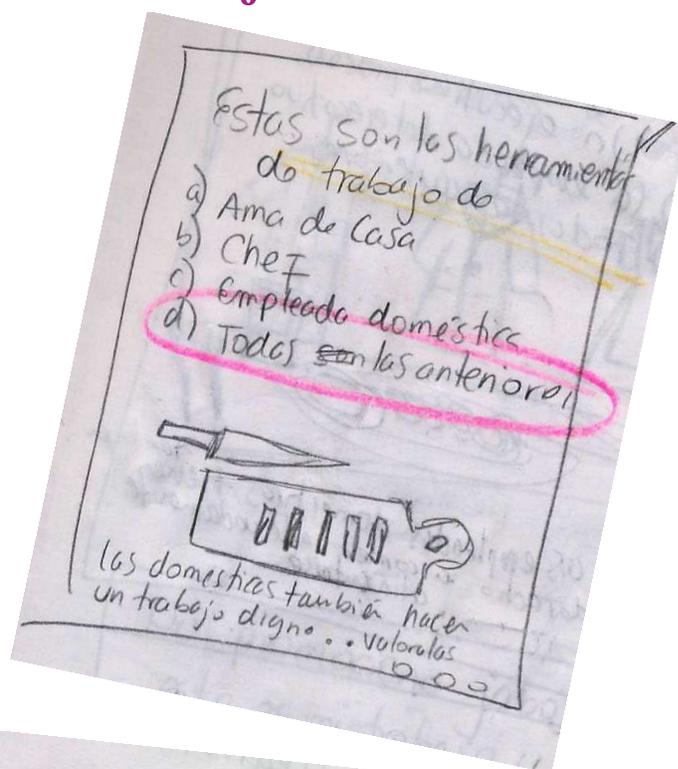 Estas son las herramientas
de trabajo de
a) Ama de Casa
b) Chef
c) Empleada doméstica
d) Todas son las anteriores
las domesticas también hacen
un trabajo digno... valoralas